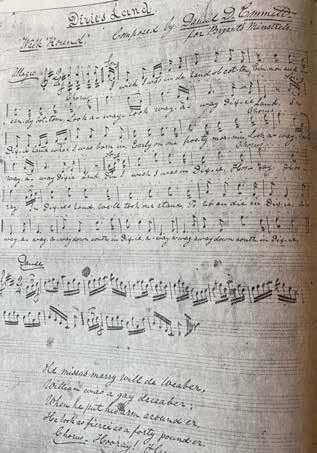 Dixies Land
"Walk 'Round" Composed by Daniel D. Emmett
for Bryants Minstrels.
Allegro
I wish I was in de land ob cotton, Cimmon seed an
Chorus
sandy bottom, Look a-way, look away, a-way Dixie Land, In
Chorus
Dixie Land whar I was born in, Early on one frosty mornin, Look a-way, look
Chorus
way, a-way Dixie Land. Den I wish I was in Dixie, Hooray! Hoo-
ray! In Dixie Land, we'll took our stand, To lib an die in Dixie, A-
way, a-way, a-way down south in Dixie, a-way, a-way, away down south in Dixie,
Dance
Old missas marry will de weaber,
William was a gay deceaber;
When he put his arm around er,
He look as fierce as a forty pounder.
Chorus – Hooray!